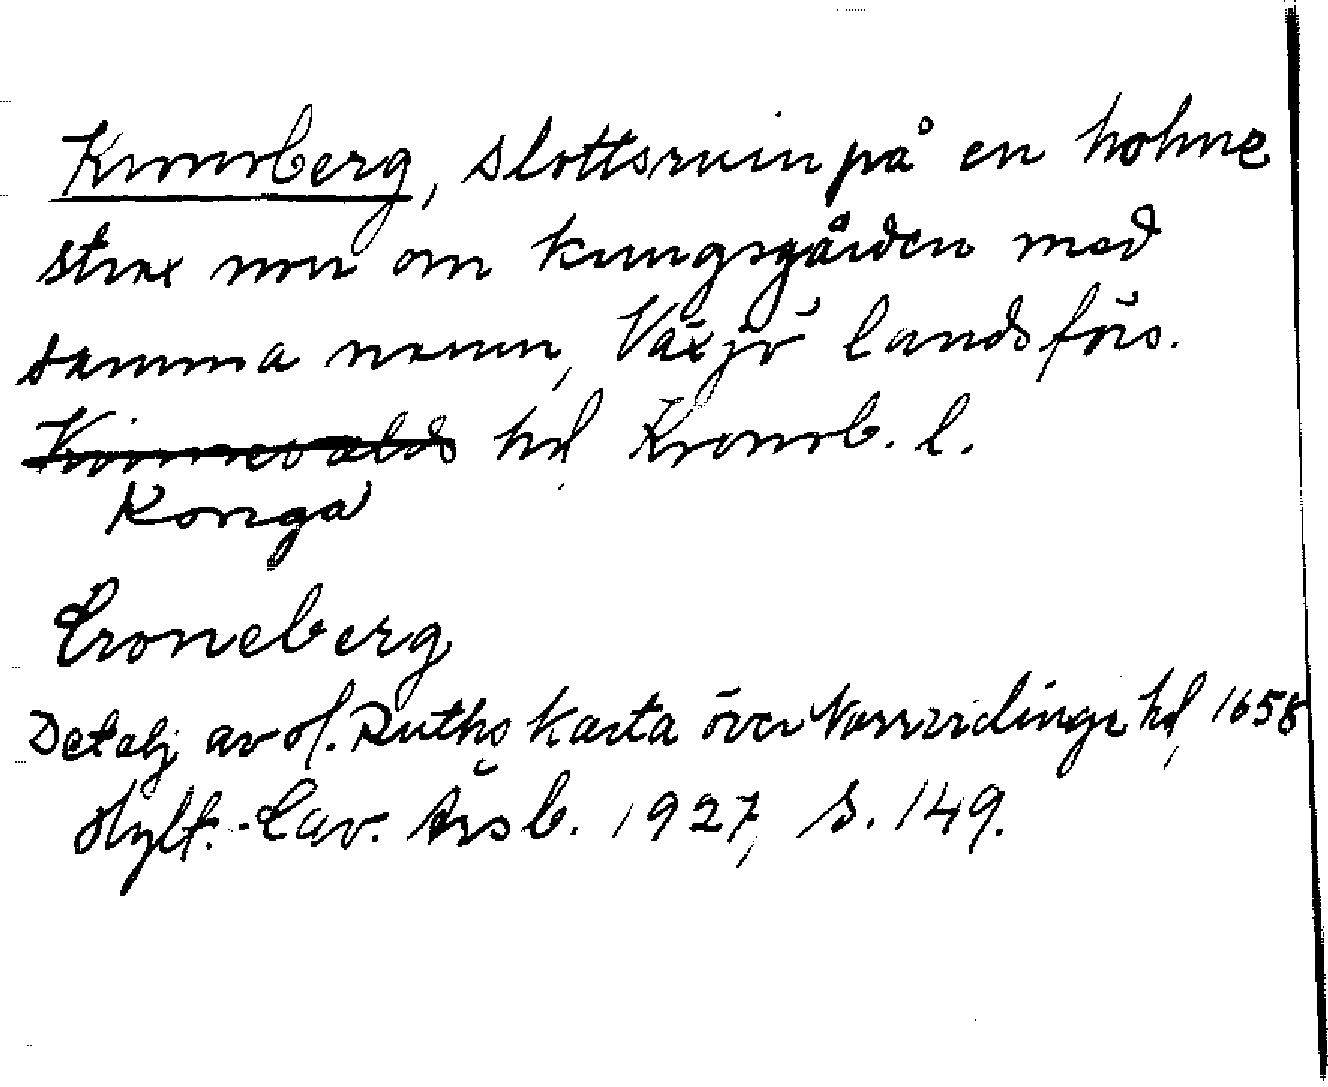 Kronoberg, slottsruin på en holme
strax norr om kungsgården med
samma namn, Växjö landsförs.
Kinnevalds hd, Kronob. l.
Konga
Croneberg
Detalj av ol. Duths karta över Norrvidinge hd, 1658
Hylt.-Cav. Årsb. 1927, s. 149.